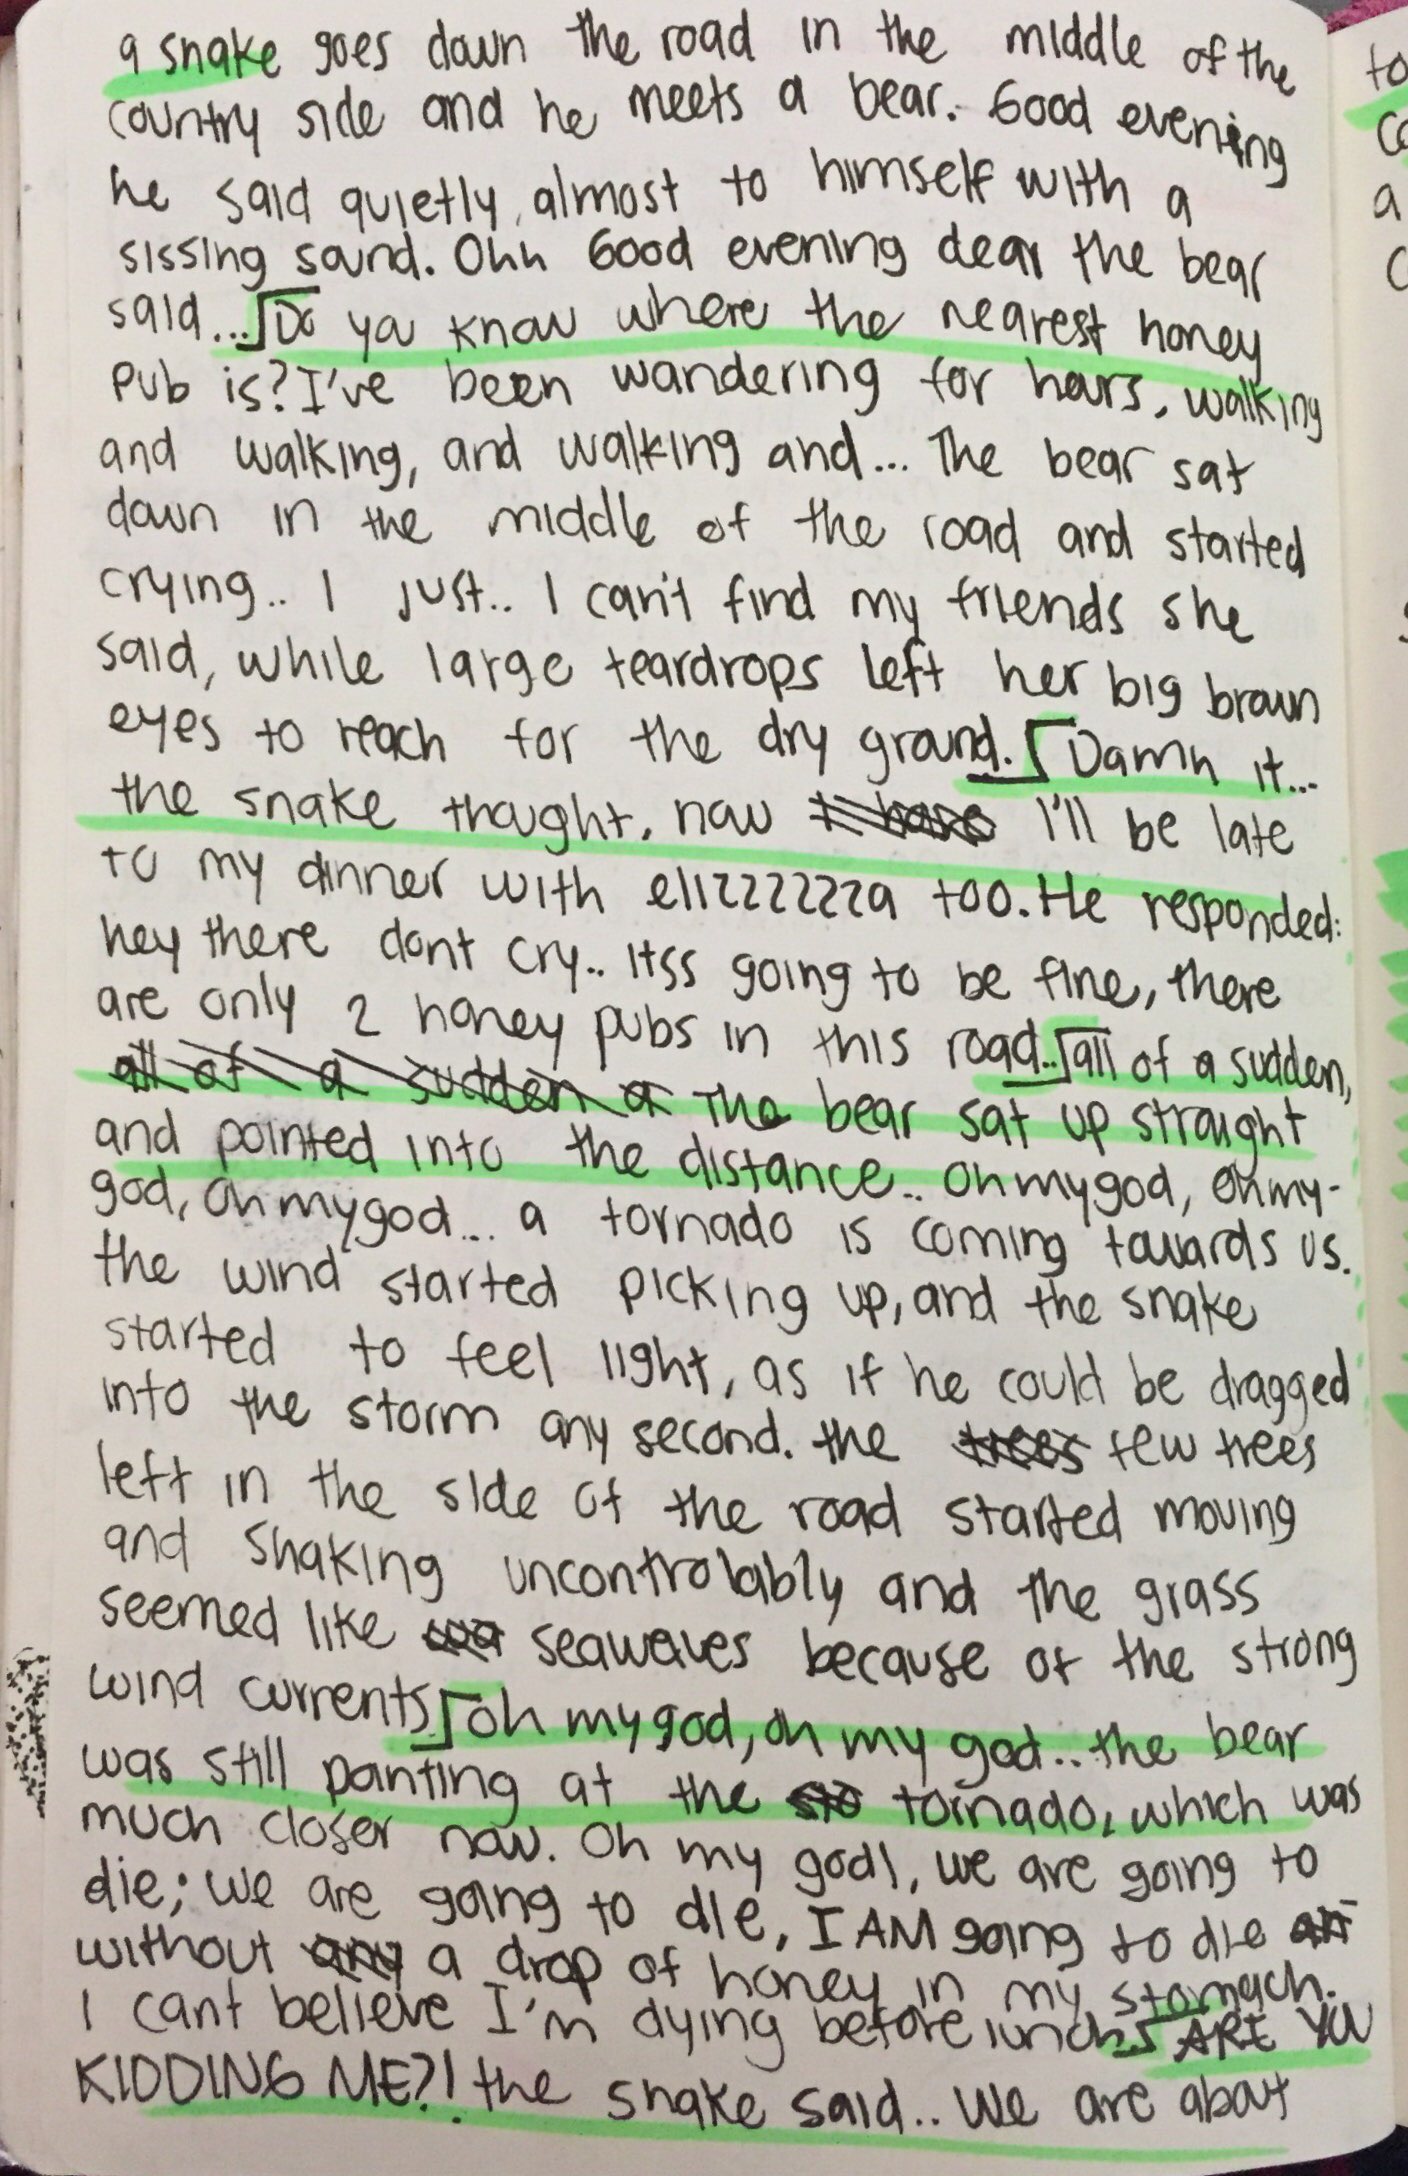 a snake goes down the road in the middle of the
country side and he meets a bear. Good evening
he said quietly, almost to himself with a
sissing sound. Ohh Good evening dear the bear
said... Do you know where the nearest honey
pub is? I've been wandering for hours, walking
and walking, and walking and... The bear sat
down in the middle of the road and started
crying.. I just.. I can't find my friends she
said, while large teardrops left her big brown
eyes to reach for the dry ground. Damn it...
the snake thought, now I have I'll be late
to my dinner with elizzzzzza too. He responded:
hey there dont cry.. itss going to be fine, there
are only 2 honey pubs in this road.. all of a sudden,
all of a sudden a The bear sat up straight
and pointed into the distance.. oh my god, oh my-
god, oh my god... a tornado is coming towards us.
the wind started picking up, and the snake
started to feel light, as if he could be dragged
into the storm any second. the trees few trees
left in the side of the road started moving
and shaking uncontrolably and the grass
seemed like wa seawaves because of the strong
wind currents oh my god, oh my god.. the bear
was still pointing at the sto tornado, which was
much closer now. Oh my god!, we are going to
die; we are going to die, I AM going to die
without any a drop of honey in my stomach.
I cant believe I'm dying before lunch. ARE YOU
KIDDING ME?! the snake said.. We are about
to
a